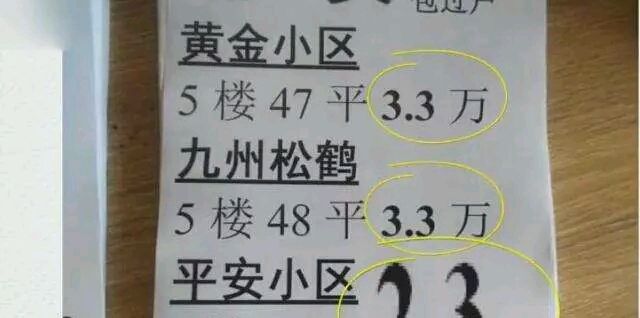 包过户
黄金小区
5 楼 47 平 3.3 万
九州松鹤
5 楼 48 平 3.3 万
平安小区